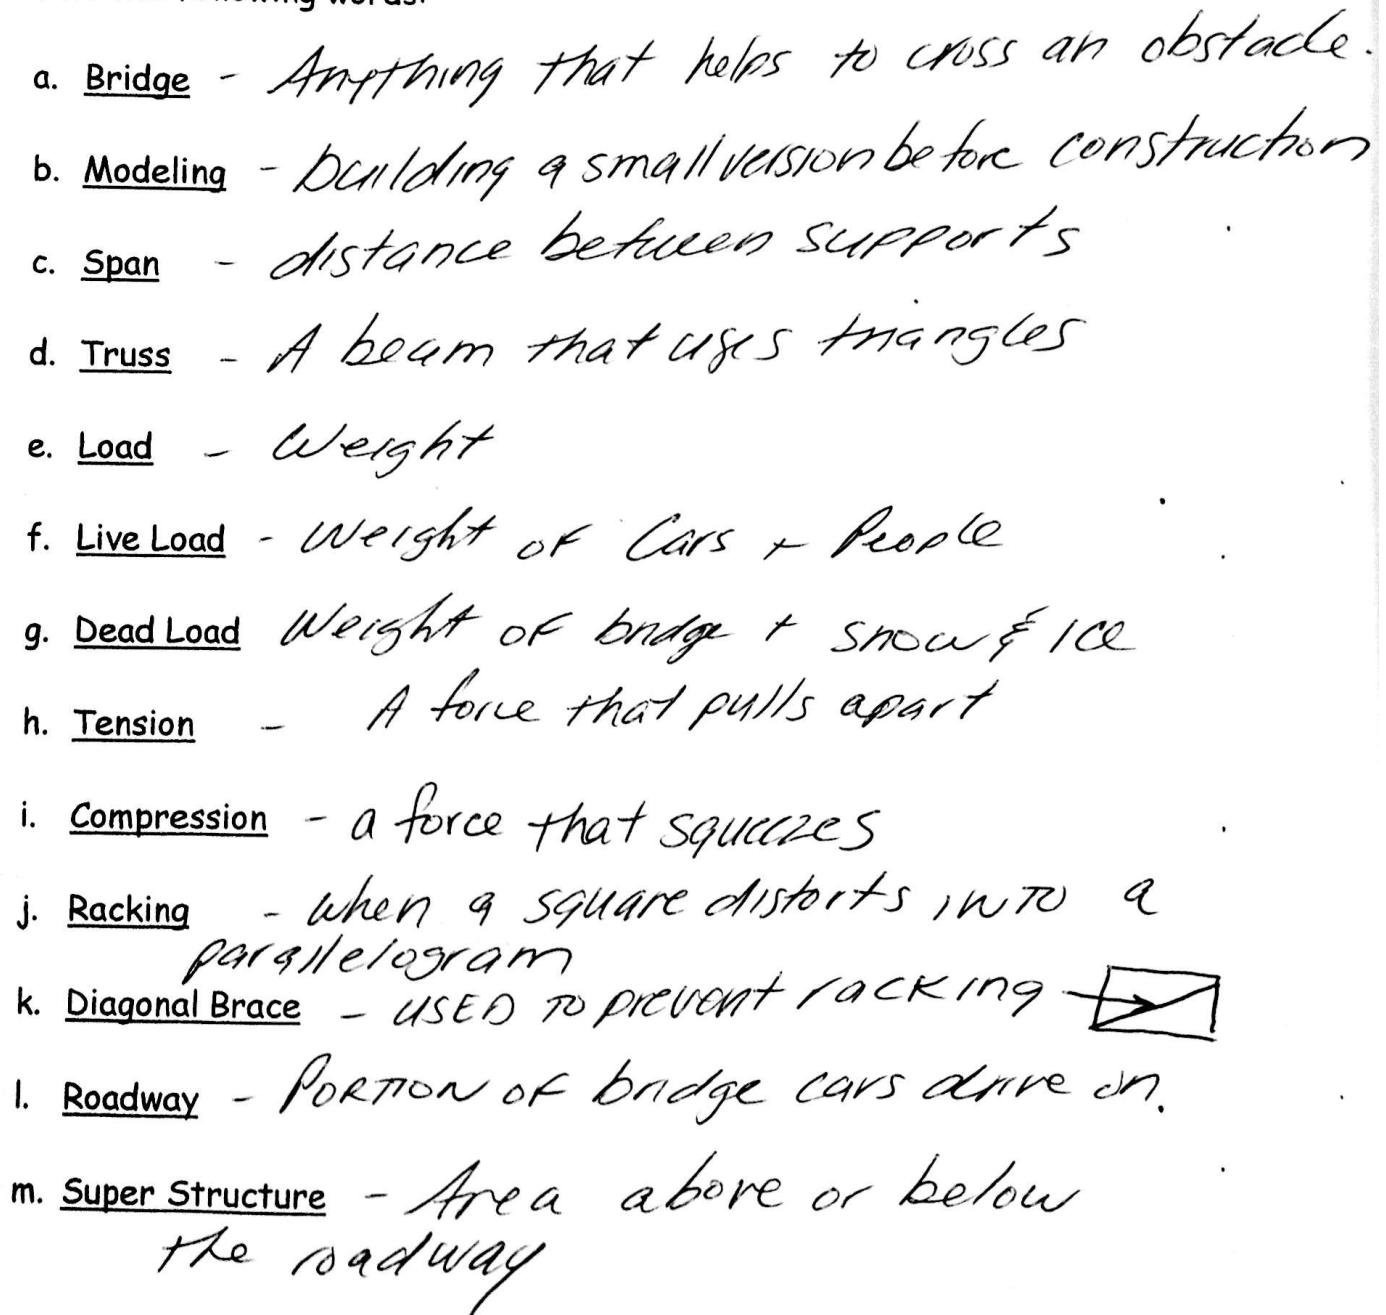 following words.
a. Bridge - Anything that helps to cross an obstacle.
b. Modeling - building a small version before construction
c. Span - distance between supports
d. Truss - A beam that uses triangles
e. Load - Weight
f. Live Load - Weight of Cars + People
g. Dead Load Weight of bridge + snow & ice
h. Tension - A force that pulls apart
i. Compression - a force that squeezes
j. Racking - when a square distorts INTO a
parallelogram
k. Diagonal Brace - USED TO prevent racking
l. Roadway - PORTION OF bridge cars drive on.
m. Super Structure - Area above or below
the roadway